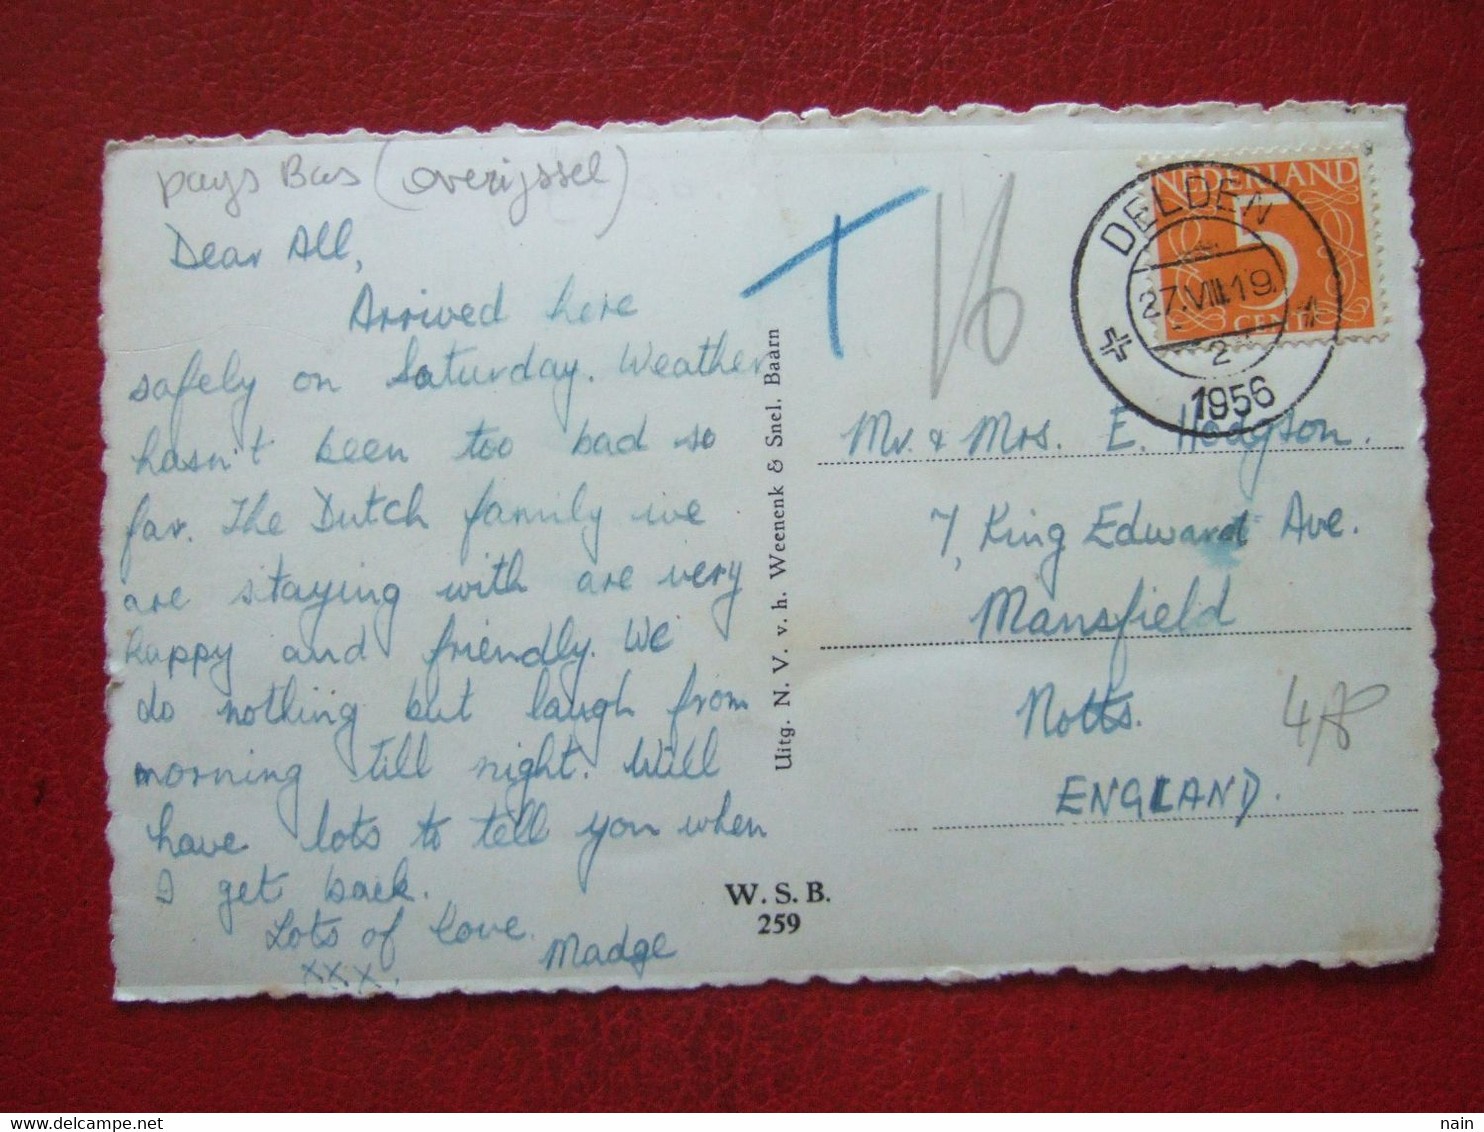 pays Bas (overijssel)
Dear All,
Arrived here
safely on Saturday. Weather
hasn't been too bad so
far. The Dutch family we
are staying with are very
happy and friendly. We
do nothing but laugh from
morning till night. Will
have lots to tell you when
I get back.
Lots of love.
xxx. Madge
Uitg. N. V. v. h. Weenenk & Snel. Baarn
W. S. B.
259
T
NEDERLAND
5
CENT
DELDEN
27.VIII.19
2
1956
Mr. & Mrs. E. Hodgson.
7, King Edward Ave.
Mansfield
Notts.
ENGLAND.
delcampe.net
nain